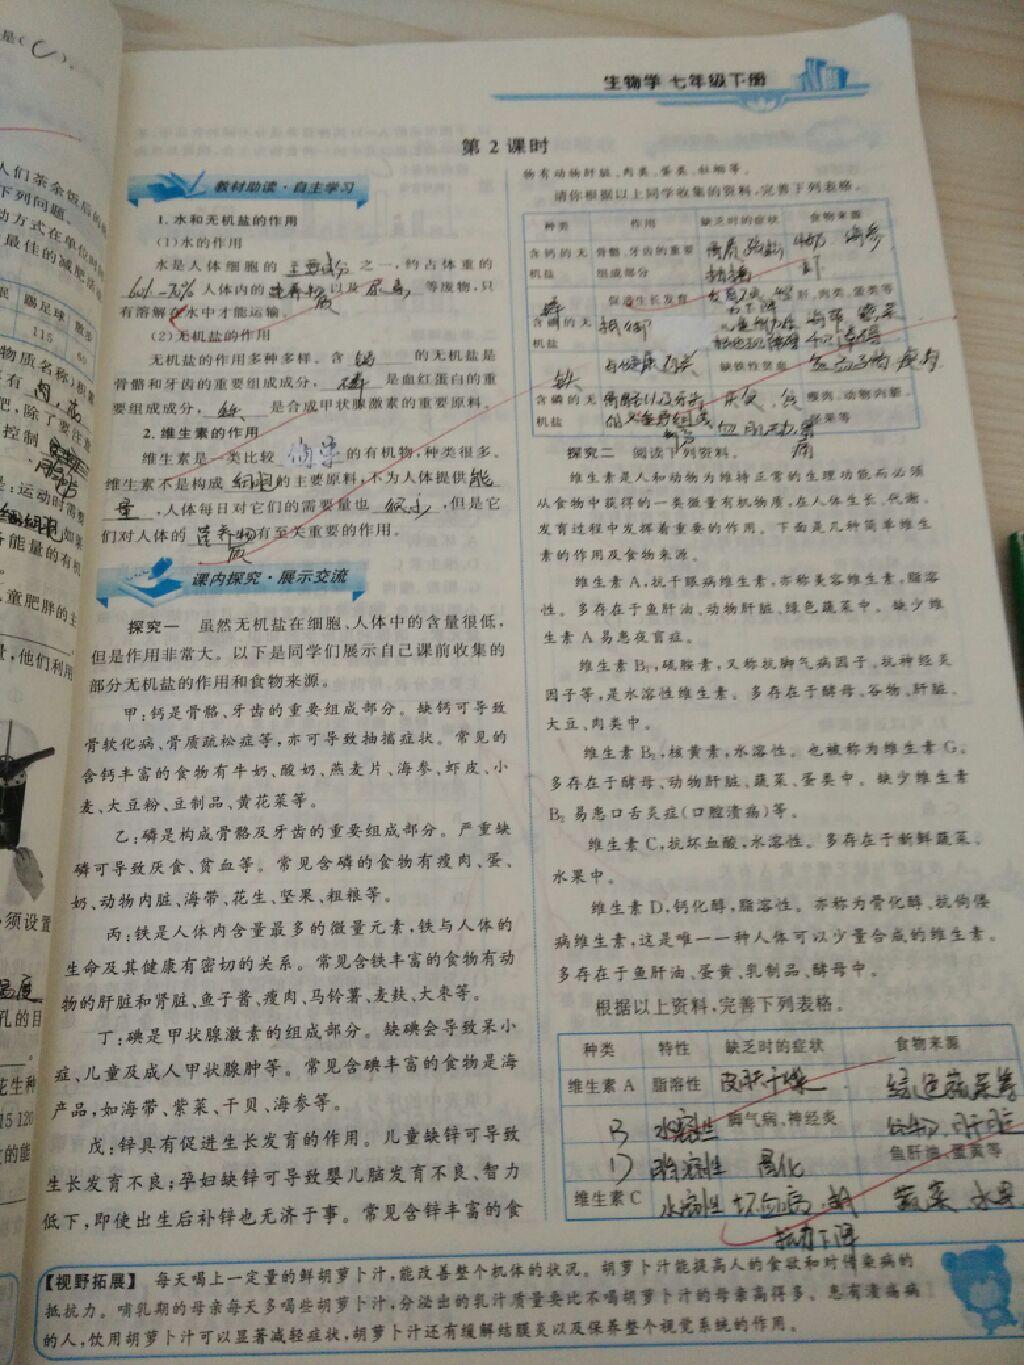 生物学 七年级下册
第 2 课时
教材助读·自主学习
1. 水和无机盐的作用
(1)水的作用
水是人体细胞的 主要成分 之一,约占体重的
60%-70% 人体内的 营养物质 以及 尿素 等废物,只
有溶解在水中才能运输。
(2)无机盐的作用
无机盐的作用多种多样。含 钙 的无机盐是
骨骼和牙齿的重要组成成分, 是血红蛋白的重
要组成成分, 是合成甲状腺激素的重要原料。
2. 维生素的作用
维生素是一类比较 简单 的有机物,种类很多。
维生素不是构成 细胞 的主要原料,不为人体提供 能
量 ,人体每日对它们的需要量也 较小 ,但是它
们对人体的 有至关重要的作用。
课内探究·展示交流
探究一 虽然无机盐在细胞、人体中的含量很低,
但是作用非常大。以下是同学们展示自己课前收集的
部分无机盐的作用和食物来源。
甲:钙是骨骼、牙齿的重要组成部分。缺钙可导致
骨软化病、骨质疏松症等,亦可导致抽搐症状。常见的
含钙丰富的食物有牛奶、酸奶、燕麦片、海参、虾皮、小
麦、大豆粉、豆制品、黄花菜等。
乙:磷是构成骨骼及牙齿的重要组成部分。严重缺
磷可导致厌食、贫血等。常见含磷的食物有瘦肉、蛋、
奶、动物内脏、海带、花生、坚果、粗粮等。
丙:铁是人体内含量最多的微量元素,铁与人体的
生命及其健康有密切的关系。常见含铁丰富的食物有动
物的肝脏和肾脏、鱼子酱、瘦肉、马铃薯、麦麸、大枣等。
丁:碘是甲状腺激素的组成部分。缺碘会导致呆小
症、儿童及成人甲状腺肿等。常见含碘丰富的食物是海
产品,如海带、紫菜、干贝、海参等。
戊:锌具有促进生长发育的作用。儿童缺锌可导致
生长发育不良;孕妇缺锌可导致婴儿脑发育不良、智力
低下,即使出生后补锌也无济于事。常见含锌丰富的食
物有动物肝脏、肉类、蛋类、牡蛎等。
请你根据以上同学收集的资料,完善下列表格。
种类 作用 缺乏时的症状 食物来源
含钙的无 骨骼、牙齿的重要 牛奶 海参
机盐 组成部分
促进生长发育 肝、肉类、蛋类等
含碘的无
机盐
铁 缺铁性贫血
含磷的无 瘦肉、动物内脏、
机盐 坚果等
探究二 阅读下列资料。
维生素是人和动物为维持正常的生理功能而必须
从食物中获得的一类微量有机物质,在人体生长、代谢、
发育过程中发挥着重要的作用。下面是几种简单维生
素的作用及食物来源。
维生素 A,抗干眼病维生素,亦称美容维生素,脂溶
性。多存在于鱼肝油、动物肝脏、绿色蔬菜中。缺少维
生素 A 易患夜盲症。
维生素 B₁,硫胺素,又称抗脚气病因子、抗神经炎
因子等,是水溶性维生素。多存在于酵母、谷物、肝脏、
大豆、肉类中。
维生素 B₂,核黄素,水溶性。也被称为维生素 G。
多存在于酵母、动物肝脏、蔬菜、蛋类中。缺少维生素
B₂ 易患口舌炎症(口腔溃疡)等。
维生素 C,抗坏血酸,水溶性。多存在于新鲜蔬菜、
水果中。
维生素 D,钙化醇,脂溶性。亦称为骨化醇、抗佝偻
病维生素,这是唯一一种人体可以少量合成的维生素。
多存在于鱼肝油、蛋黄、乳制品、酵母中。
根据以上资料,完善下列表格。
种类 特性 缺乏时的症状 食物来源
维生素 A 脂溶性 皮肤干燥 绿色蔬菜等
B 水溶性 脚气病、神经炎 谷物、肝脏
D 脂溶性 鱼肝油、蛋黄等
维生素 C 水溶性 坏血病 蔬菜 水果
抵抗力下降
【视野拓展】 每天喝上一定量的鲜胡萝卜汁,能改善整个机体的状况。胡萝卜汁能提高人的食欲和对传染病的
抵抗力。哺乳期的母亲每天多喝些胡萝卜汁,分泌出的乳汁质量要比不喝胡萝卜汁的母亲高得多。患有溃疡病
的人,饮用胡萝卜汁可以显著减轻症状,胡萝卜汁还有缓解结膜炎以及保养整个视觉系统的作用。